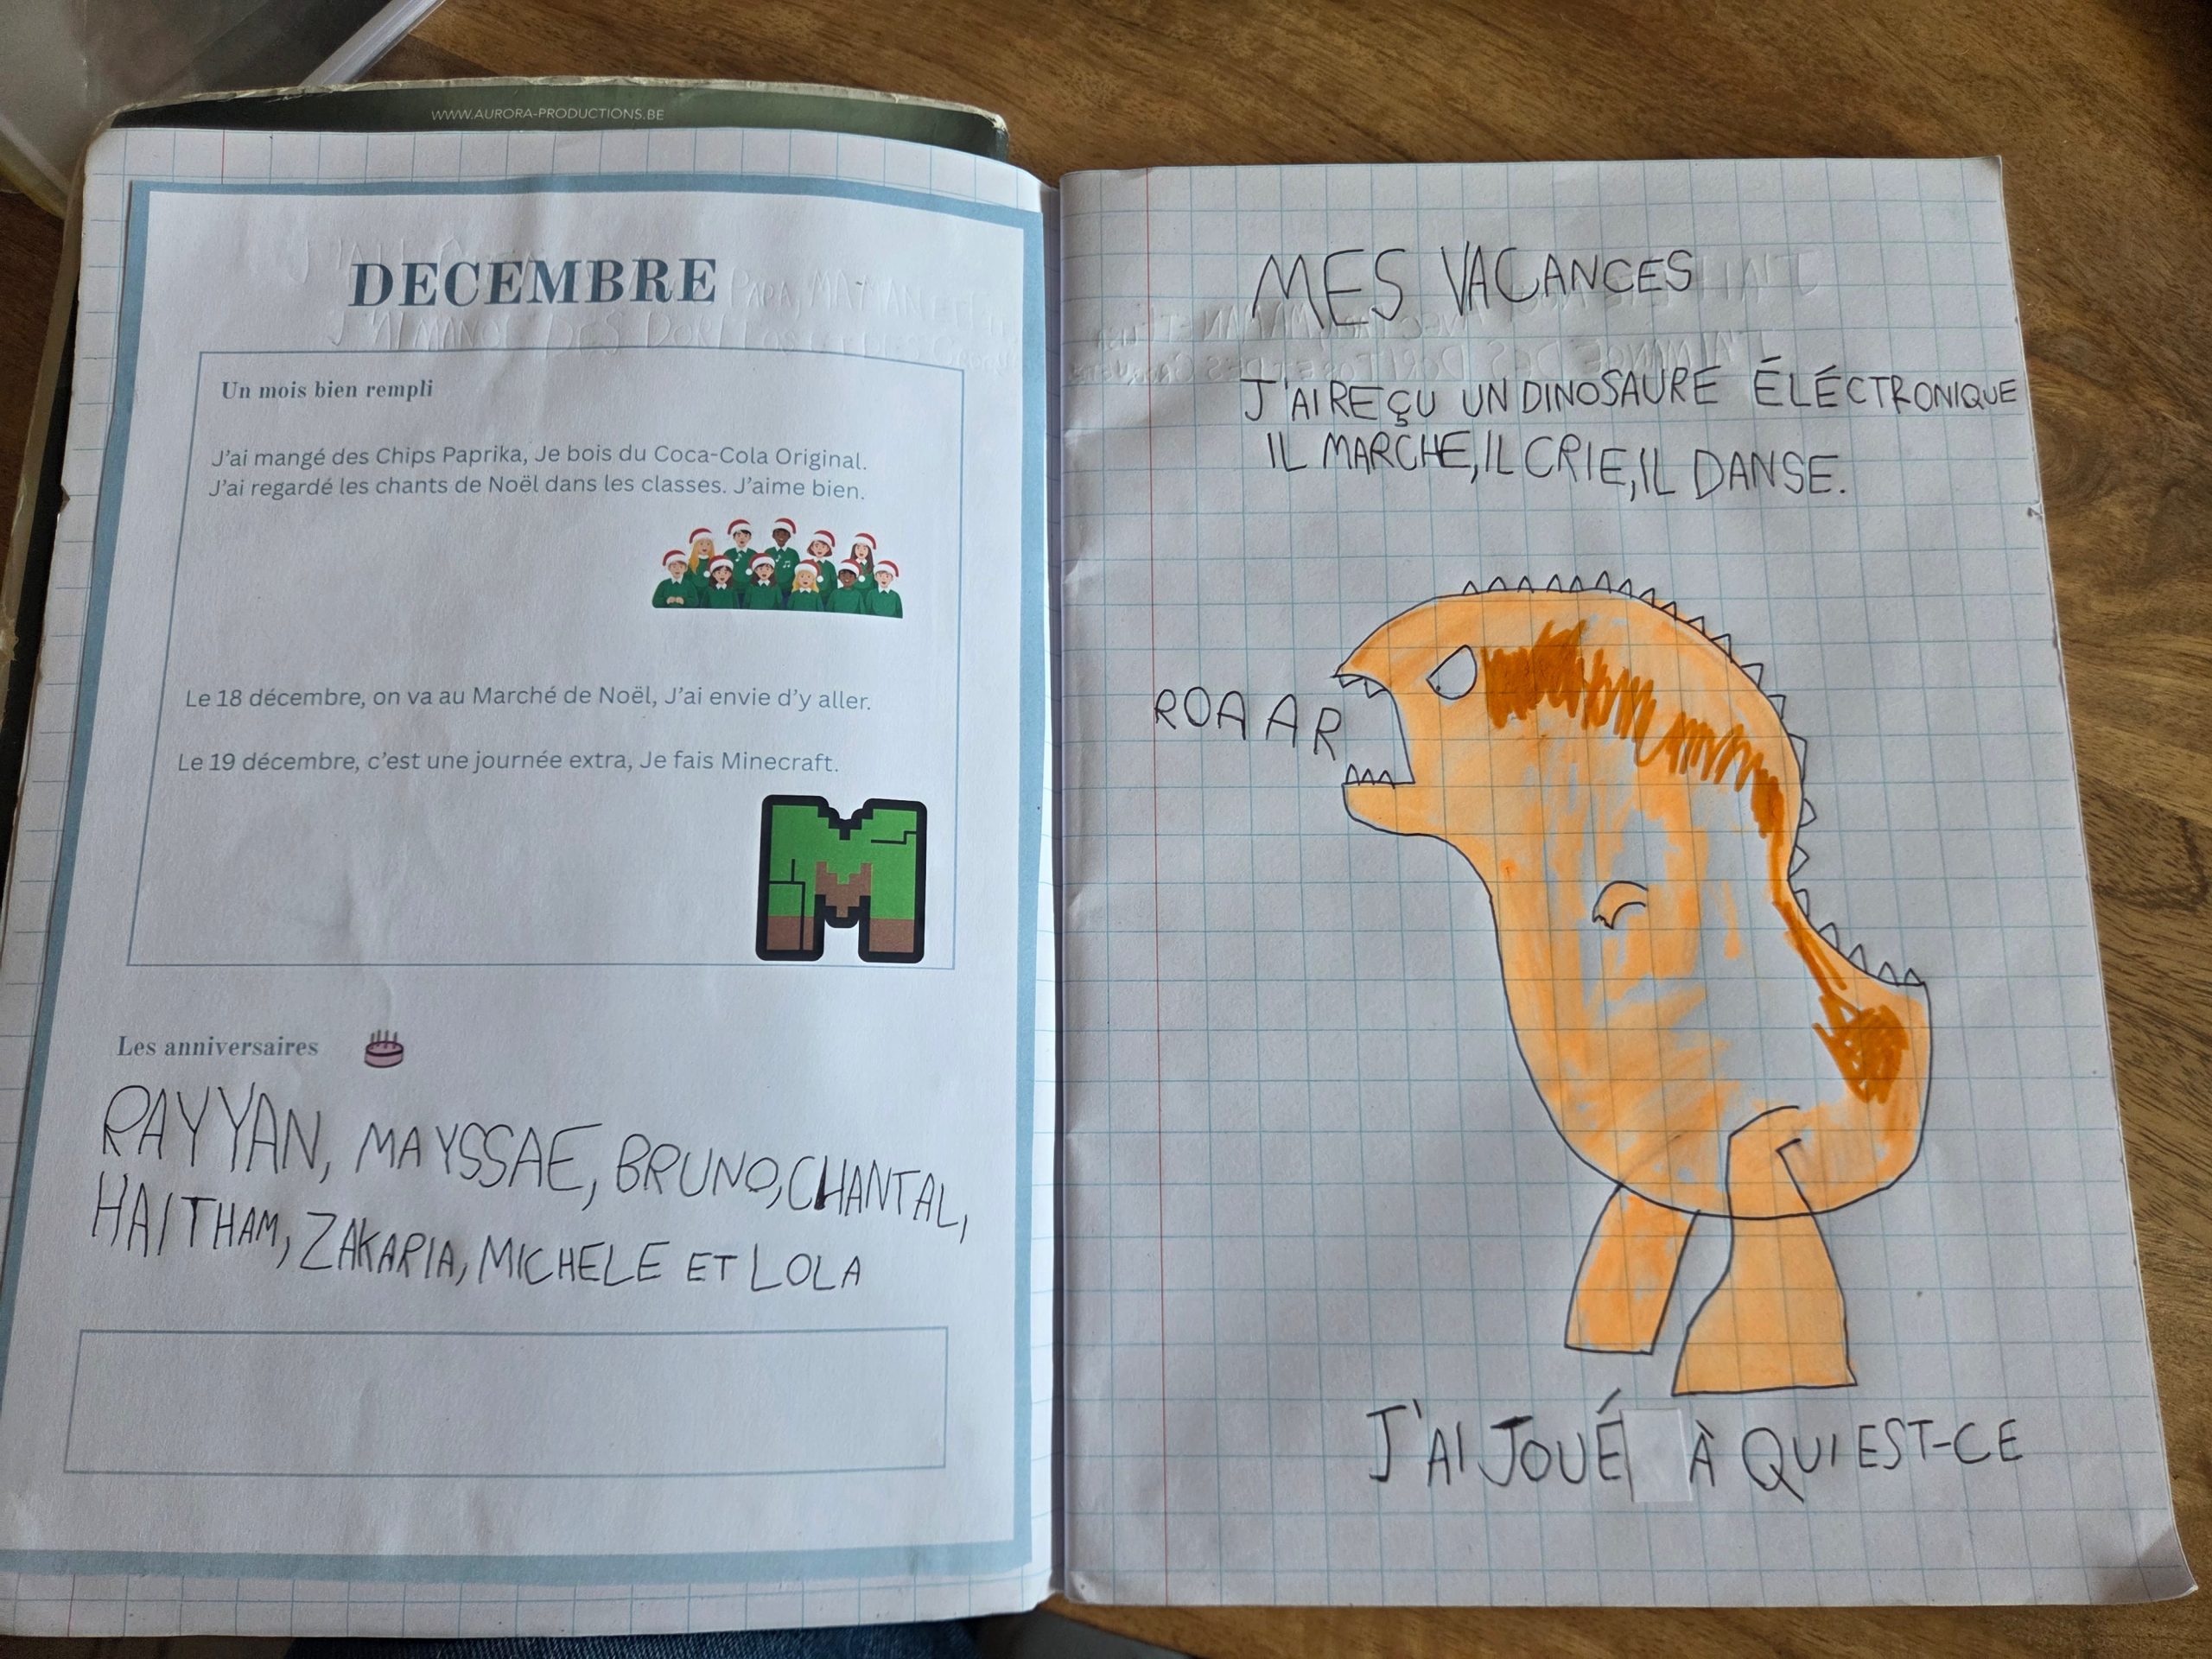 WWW.AURORA-PRODUCTIONS.BE
DECEMBRE
Un mois bien rempli
J'ai mangé des Chips Paprika, Je bois du Coca-Cola Original.
J'ai regardé les chants de Noël dans les classes. J'aime bien.
Le 18 décembre, on va au Marché de Noël, J'ai envie d'y aller.
Le 19 décembre, c'est une journée extra, Je fais Minecraft.
M
Les anniversaires
RAYYAN, MAYSSAE, BRUNO, CHANTAL,
HAITHAM, ZAKARIA, MICHELE ET LOLA
MES VACANCES
J'AI REÇU UN DINOSAURE ÉLÉCTRONIQUE
IL MARCHE, IL CRIE, IL DANSE.
ROAAR
J'AI JOUÉ À QUI EST-CE